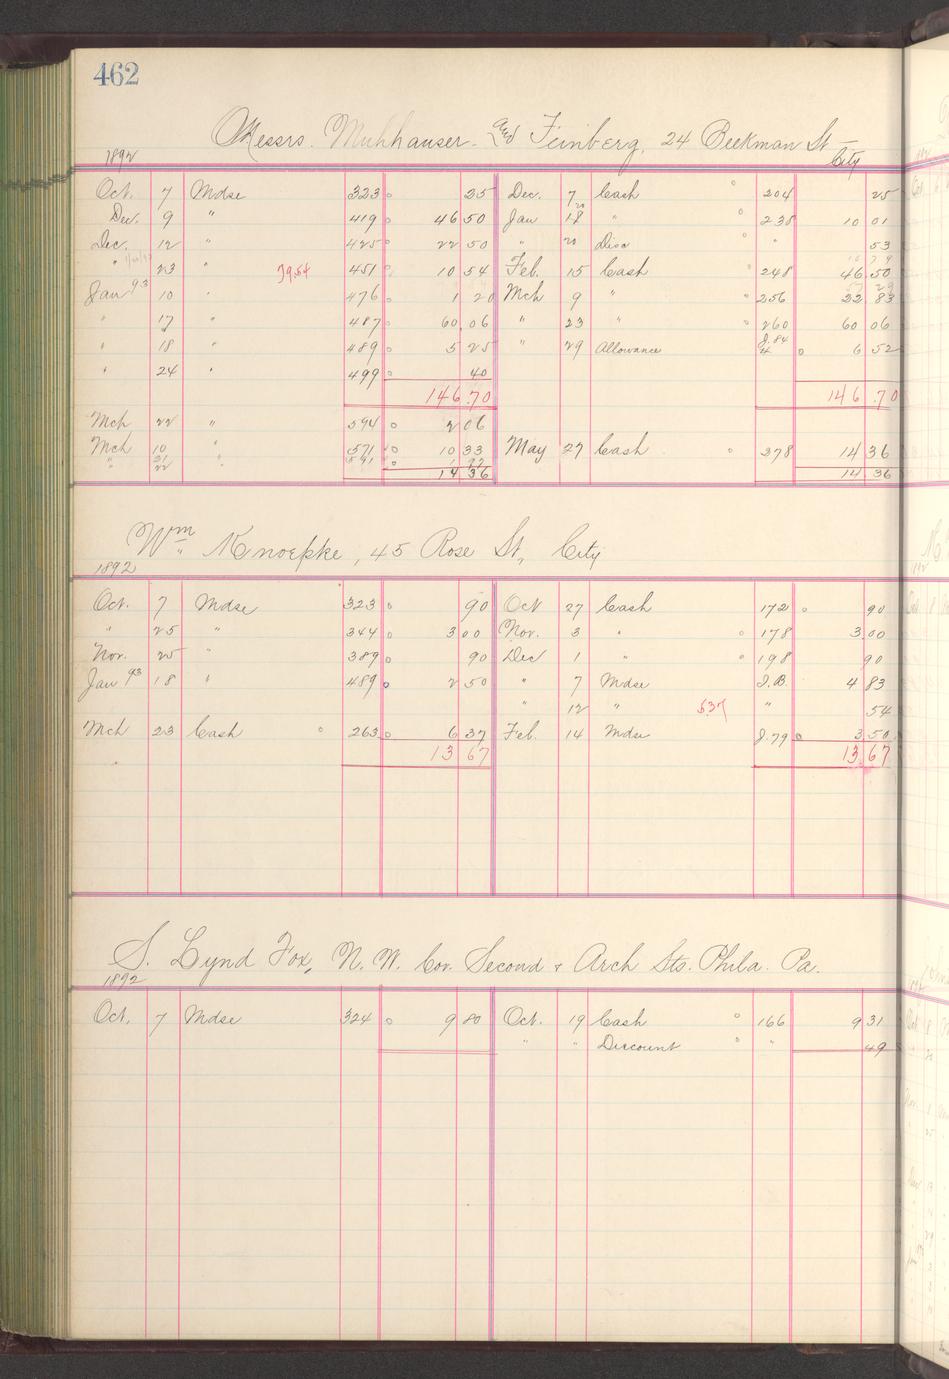 462
Messrs. Muhhauser and Feinberg, 24 Beekman St
1892 City
Oct. 7 Mdse 323 25 Dec. 7 Cash 204 25
Dec. 9 " 419 46 50 Jan 18 " 238 10 01
20
Dec. 12 " 425 22 50 " 20 Disc " 53
" 23 " 79.54 451 10 54 Feb. 15 Cash 248 46.50
Jan 93 10 " 476 1 20 Mch 9 " 256 22 83
" 17 " 487 60 06 " 23 " 260 60 06
" 18 " 489 5 25 " 29 Allowance J.84 6 52
" 24 " 499 40
146.70 146.70
Mch 22 " 594 2 06
Mch 10 571 10 33 May 27 Cash 378 14 36
" 21 " 591 1 97
22
14 36 14 36
Wm Knoepke, 45 Rose St, City
1892
Oct. 7 Mdse 323 90 Oct 27 Cash 172 90
" 25 " 344 3 00 Nov. 3 " 178 3.00
Nov. 25 " 389 90 Dec 1 " 198 90
Jan 93 18 " 489 2 50 " 7 Mdse J.B. 4 83
" 12 " 537 " 54
Mch 23 Cash 263 6 37 Feb. 14 Mdse J.79 3.50
13 67 13.67
S. Lynd Fox, N. W. Cor. Second & Arch Sts. Phila. Pa.
1892
Oct. 7 Mdse 324 9 80 Oct. 19 Cash 166 9 31
" " Discount " " 49